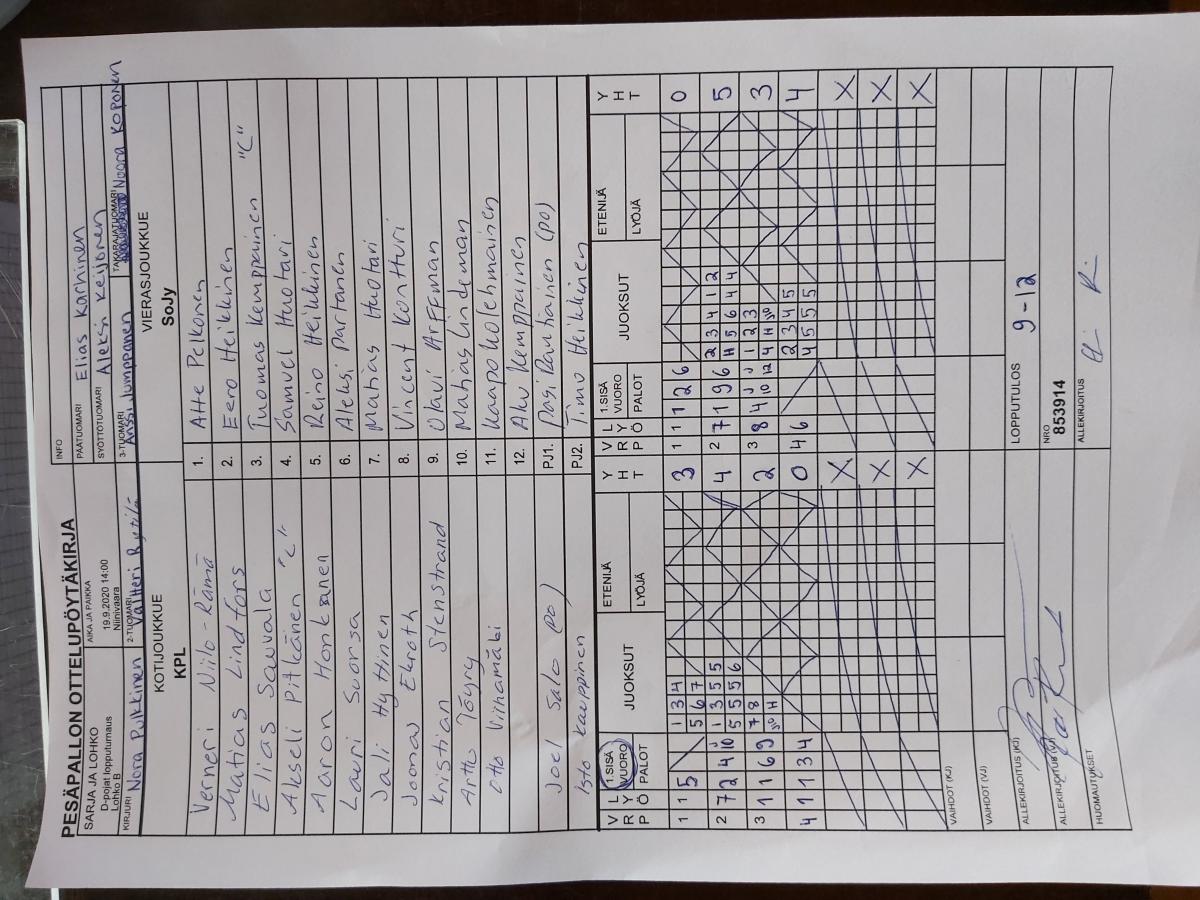 PESÄPALLON OTTELUPÖYTÄKIRJA
SARJA JA LOHKO
D-pojat lopputurnaus
Lohko B
AIKA JA PAIKKA
19.9.2020 14:00
Niinivaara
INFO
PÄÄTUOMARI Elias Karhinen
SYÖTTÖTUOMARI Aleksi Keijonen
KIRJURI Nora Pulkkinen
2-TUOMARI Valtteri Rytilä
3-TUOMARI Anssi Jumppanen
TAKARAJATUOMARI Noora Koponen
KOTIJOUKKUE
KPL
VIERASJOUKKUE
SoJy
Verneri Niilo-Rämä 1. Atte Pelkonen
Matias Lindfors 2. Eero Heikkinen
Elias Sawala 3. Tuomas Kemppainen "C"
Akseli Pitkänen "C" 4. Samuel Huotari
Aaron Honkanen 5. Reino Heikkinen
Lauri Suorsa 6. Aleksi Partanen
Jali Hyttinen 7. Matias Huotari
Joonas Ekroth 8. Vincent Kontturi
Kristian Stenstrand 9. Oavi Arffman
Arttu Töyry 10. Matias Lindeman
Otto Viihamäki 11. Kaapo Kolehmainen
12. Aku Kemppainen
Joel Salo (po) PJ1. Pasi Rautiainen (po)
Isto Kauppinen PJ2. Timo Heikkinen
V R Ö L Y P 1.SISÄ VUORO PALOT JUOKSUT ETENIJÄ LYÖJÄ Y H T V R Ö L Y P 1.SISÄ VUORO PALOT JUOKSUT ETENIJÄ LYÖJÄ Y H T
1 1 5 1 3 4 3 1 1 1 2 6 0
5 6 7
2 7 2 4 10 1 3 5 5 4 2 7 1 9 6 2 3 4 1 2 5
5 5 5 6 H 5 6 4 4
3 1 1 6 9 7 8 2 3 8 4 10 12 1 2 3 3
JO H 4 H JO
4 1 1 3 4 0 4 6 2 3 4 5 4
4 5 5 5
X X
X X
X X
VAIHDOT (KJ)
VAIHDOT (VJ)
ALLEKIRJOITUS (KJ)
LOPPUTULOS 9-12
ALLEKIRJOITUS (VJ)
NRO
853914
HUOMAUTUKSET
ALLEKIRJOITUS